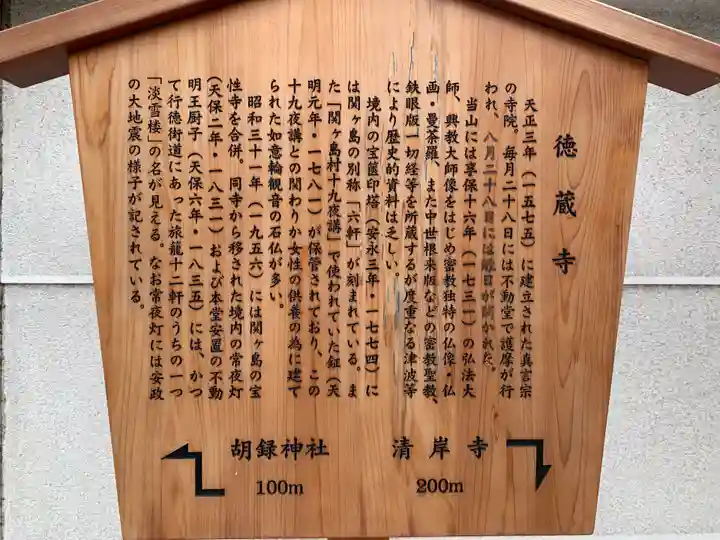 徳蔵寺
天正三年(一五七五)に建立された真言宗
の寺院。毎月二十八日には不動堂で護摩が行
われ、八月二十八日には縁日が開かれた。
当山には享保十六年(一七三一)の弘法大
師、興教大師像をはじめ密教独特の仏像・仏
画・曼荼羅、また中世根来版などの密教聖教、
鉄眼版一切経等を所蔵するが度重なる津波等
により歴史的資料は乏しい。
境内の宝篋印塔(安永三年・一七七四)に
は関ヶ島の別称「六軒」が刻まれている。ま
た「関ヶ島村十九夜講」で使われていた鉦(天
明元年・一七八一)が保管されており、この
十九夜講との関わりか女性の供養の為に建て
られた如意輪観音の石仏が多い。
昭和三十一年(一九五六)には関ヶ島の宝
性寺を合併。同寺から移された境内の常夜灯
(天保二年・一八三一)および本堂安置の不動
明王厨子(天保六年・一八三五)には、かつ
て行徳街道にあった旅籠十二軒のうちの一つ
「淡雪楼」の名が見える。なお常夜灯には安政
の大地震の様子が記されている。
胡録神社
100m
清岸寺
200m